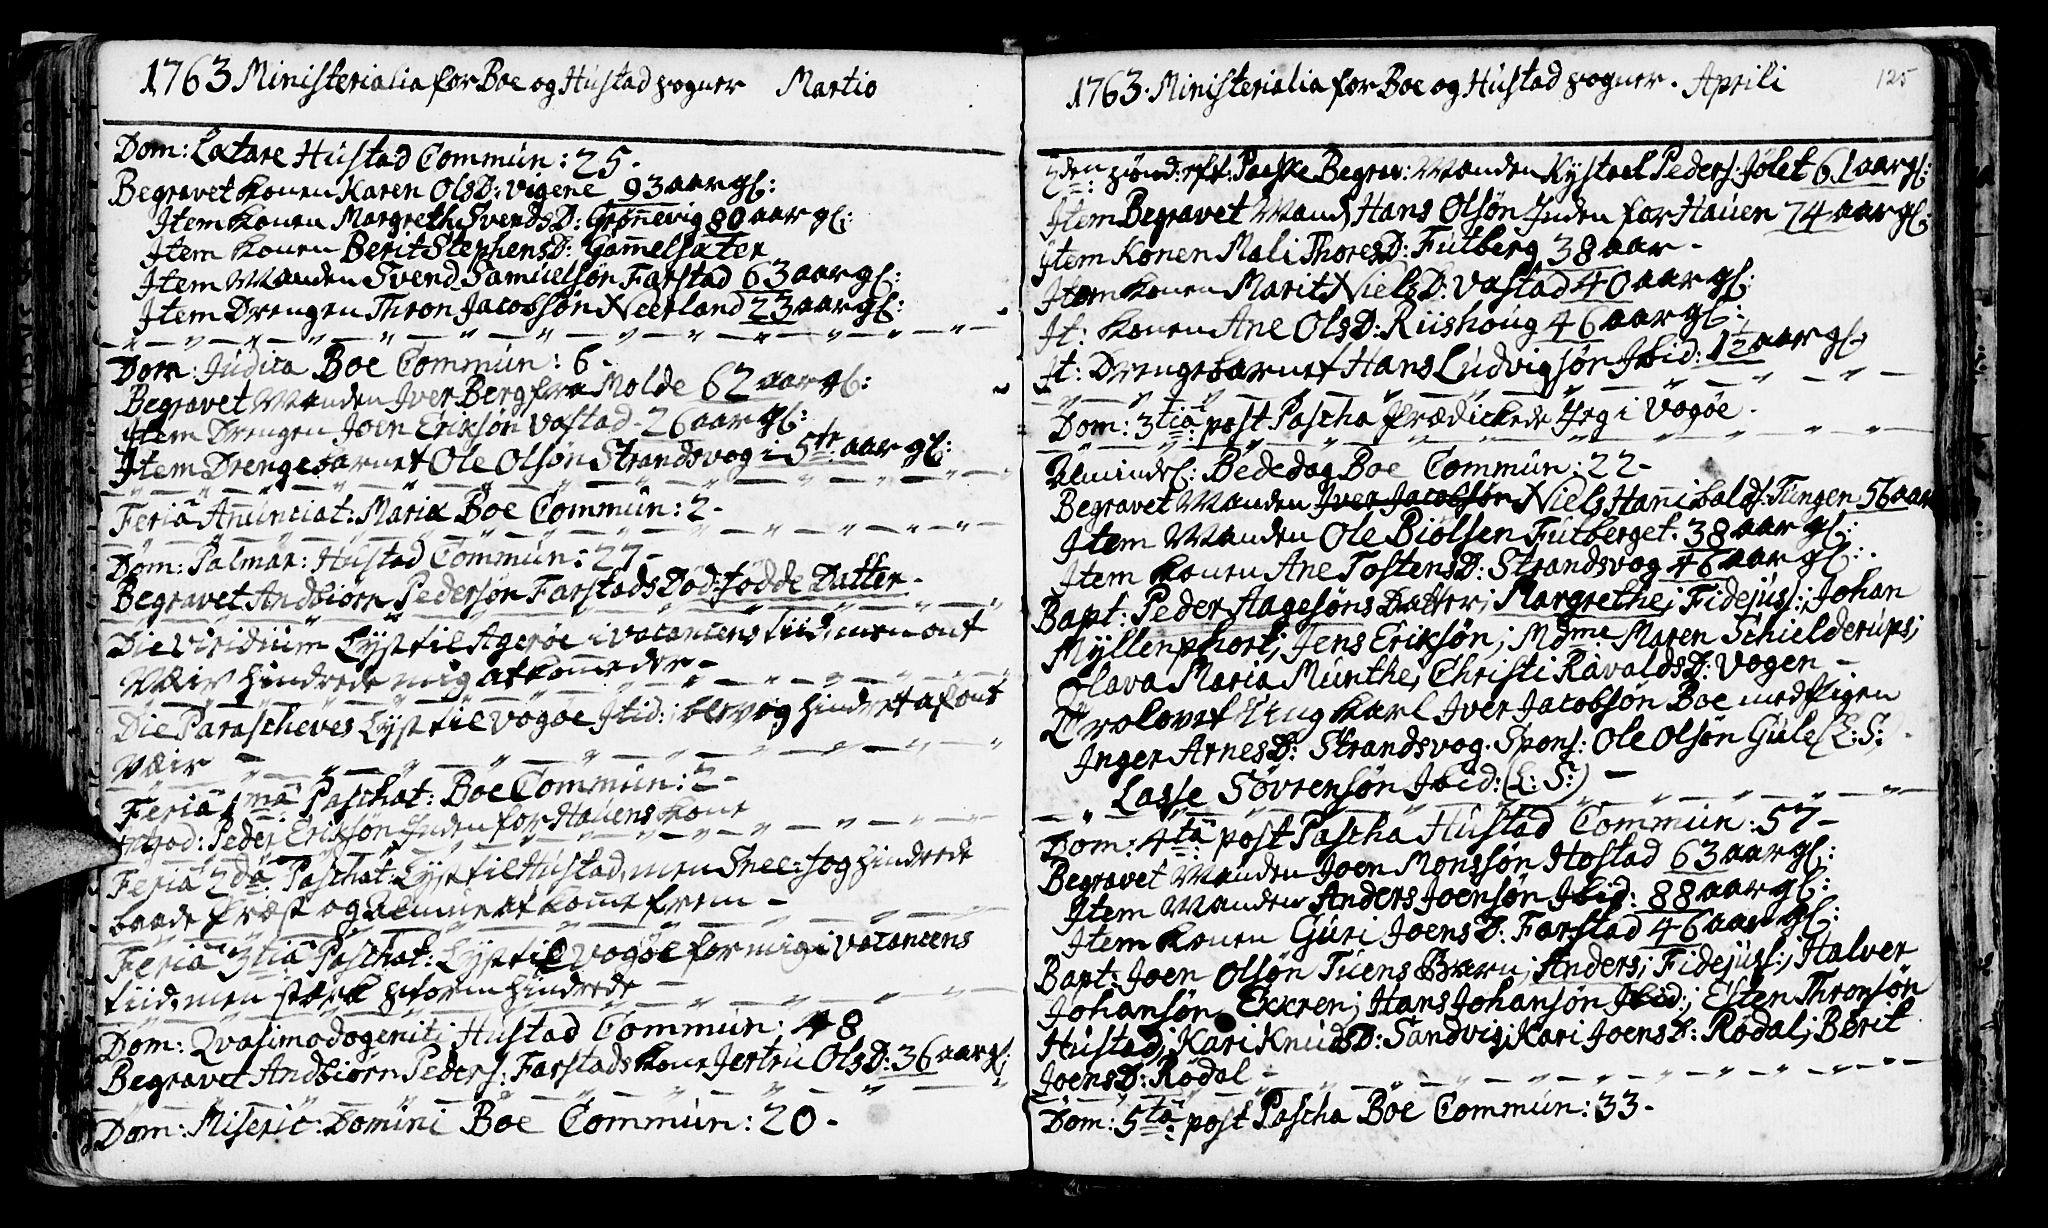 1763 Ministerialia for Boe og Hustad sogner Martio
Dom: Lætare Hustad Commun: 25.
Begravet Konen Karen OlsD: Vigene 93 aar gl:
Item Konen Margreth SvendsD: Grønnevig 80 aar gl:
Item Konen Berit StephensD: Gamelsæter
Item Manden Svend Samuelsøn Farstad 63 aar gl:
Item Drengen Thron Jacobsøn Neerland 23 aar gl:
Dom: Judica Boe Commun: 6.
Begravet Manden Iver Berg fra Molde 62 aar gl:
Item Drengen Joen Eriksøn Vastad 26 aar gl:
Item Drengebarnet Ole Olsøn Strandsvog i 5te aar gl:
Feria Anunciat: Mariæ Boe Commun: 2.
Dom: Palmar: Hustad Commun: 27.
Begravet Andbiørn Pedersøn Farstads Død-fødde Datter.
Die Viridium Lyst til Agerøe i Vacancens tiid, men ont
Væir hindrede mig at kome der.
Die Parascheves Lyst til Vogøe Itid: blev og hindret af ont
Væir
Feria 1ma Paschat: Boe Commun: 2.
Introd: Peder Eriksøn Inden for Hauens Kone
Feria 2da Paschat: Lyst til Hustad, men Snee-fog hindrede
baade Præst og Almue at kome frem
Feria 3tia Paschat: Lyst til Vogøe for mig i Vacancens
tiid, men stærk storm hindrede
Dom: Qvasimodogeniti Hustad Commun: 48
Begravet Andbiørn Peders: Farstads Kone Jertru OlsD: 36 aar gl:
Dom: Miseric: Domini Boe Commun: 20.
1763. Ministerialia for Boe og Hustad sogner. Aprili 125
2den Sønd: eft: Paaske Begrav: Manden Kystael Peders: Jølet 61 aar gl:
Item Begravet Mand Hans Olsøn Inden for Hauen 74 aar gl:
Item Konen Mali ThoresD: Futberg 38 aar
Item Konen Marit NielsD: Vastad 40 aar gl:
It: Konen Ane OlsD: Riishoug 46 aar gl:
It: Drengebarnet Hans Ludvigsøn Ibid: 1½ aar gl.
Dom: 3tia post Pascha Prædickede Jeg i Vogøe.
Almindel: Bededag Boe Commun: 22.
Begravet Manden Iver Jacobsøn Niels Hanibalds: Tungen 56 aar
Item Manden Ole Biølsen Futberget. 38 aar gl:
Item Konen Ane TostensD: Strandsvog 46 aar gl:
Bapt: Peder Aagesøns Datter; Margrethe; Fidejuss:; Johan
Myllenphort; Jens Eriksøn; Mdme Maren Schielderups;
Olava Maria Munthe; Christi RavaldsD: Vogen
Trolovet Ung Karl Iver Jacobsøn Boe med Pigen
Inger ArnesD: Strandsvog. Spons: Ole Olsøn Gule (L:S:)
Lasse Søvrensøn Ibid: (L:S:)
Dom: 4ta post Pascha Hustad Commun: 57
Begravet Manden Joen Monssøn Hostad 63 aar gl:
Item Manden Anders Joensøn Ibid: 88 aar gl:
Item Konen Guri JoensD: Farstad 46 aar gl:
Bapt: Joen Olsøn Tuens Barn; Anders; Fidejuss:; Halver
Johansøn Ekkren; Hans Johansøn Ibid:; Esten Thronsøn
Hustad; Kari KnudsD: Sandvig; Kari JoensD: Rødal; Berit
JoensD: Rødal
Dom: 5ta post Pascha Boe Commun: 33.